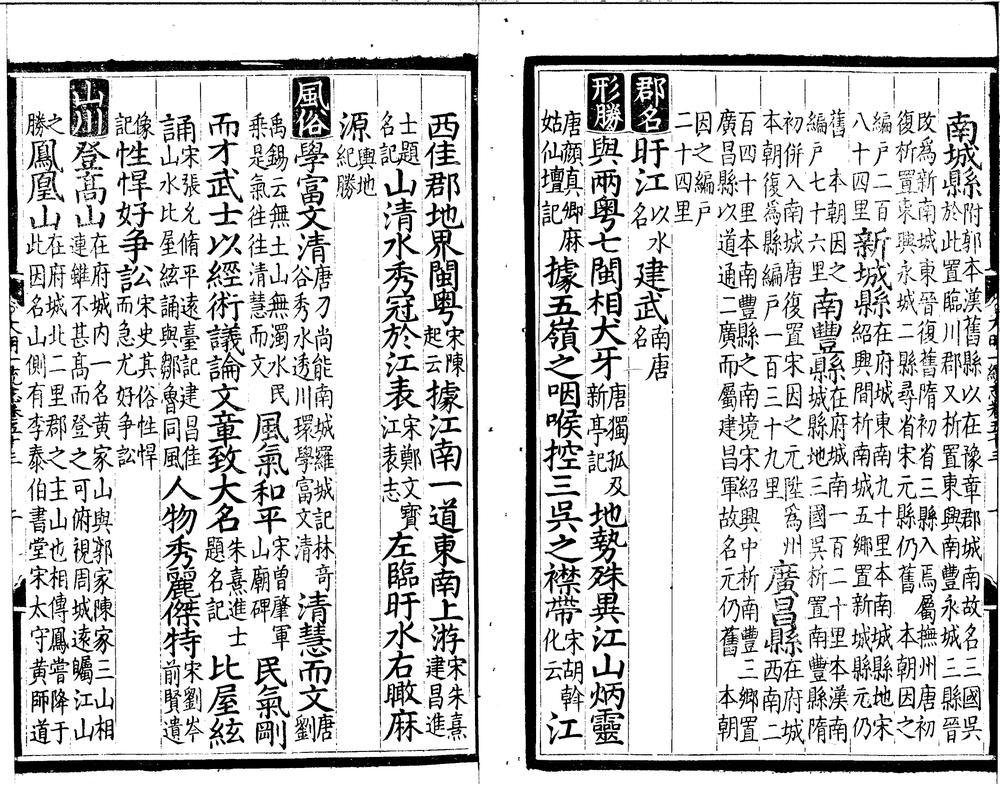 南城縣附郭本漢舊縣以在豫章郡城南故名三國吳於此置臨川郡又析置東興南豐永城三縣晉
改為新南城東晉復舊隋初省三縣入焉屬撫州唐初復析置東興永城二縣尋省宋元縣仍舊 本朝因之
編戶二百八十四里新城縣在府城東南九十里本南城縣地宋紹興間析南城五鄉置新城縣元仍
舊 本朝因之編戶七十六里南豐縣在府城南一百二十里本漢南城縣地三國吳析置南豐縣隋
初併入南城唐復置宋因之元陞為州本朝復為縣編戶一百三十九里廣昌縣在府城西南二
百四十里本南豐縣之南境宋紹興中析南豐三鄉置廣昌縣以道通二廣而屬建昌軍故名元仍舊 本朝
因之編戶二十四里
郡名盱江以水名建武南唐名
形勝與兩粵七閩相犬牙唐獨孤及新亭記地勢殊異江山炳靈
唐顏真卿麻姑仙壇記據五嶺之咽喉控三吳之襟帶宋胡斡化云江
西佳郡地界閩粵宋陳起云據江南一道東南上游宋朱熹建昌進
士題名記山清水秀冠於江表宋鄭文寶江表志左臨盱水右瞰麻
源輿地紀勝
風俗學富文清唐刀尚能南城羅城記林奇谷秀水透川環學富文清清慧而文唐劉
禹錫云無土山無濁水民乘是氣往往清慧而文風氣和平宋曾肇軍山廟碑民氣剛
而才武士以經術議論文章致大名朱熹進士題名記比屋絃
誦宋張允脩平遠臺記建昌佳山水比屋絃誦與鄒魯同風人物秀麗傑特宋劉岑前賢遺
像記性悍好爭訟宋史其俗性悍而急尤好爭訟
山川登高山在府城內一名黃家山與郭家陳家三山相連雖不甚高而登之可俯視周城遠矚江山
之勝鳳凰山在府城北二里郡之主山也相傳鳳嘗降于此因名山側有李泰伯書堂宋太守黃師道